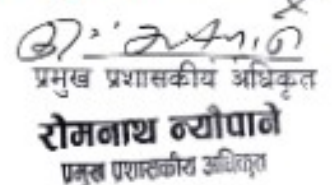 प्रमुख प्रशासकीय अधिकृत
रोमनाथ न्यौपाने
प्रमुख प्रशासकीय अधिकृत